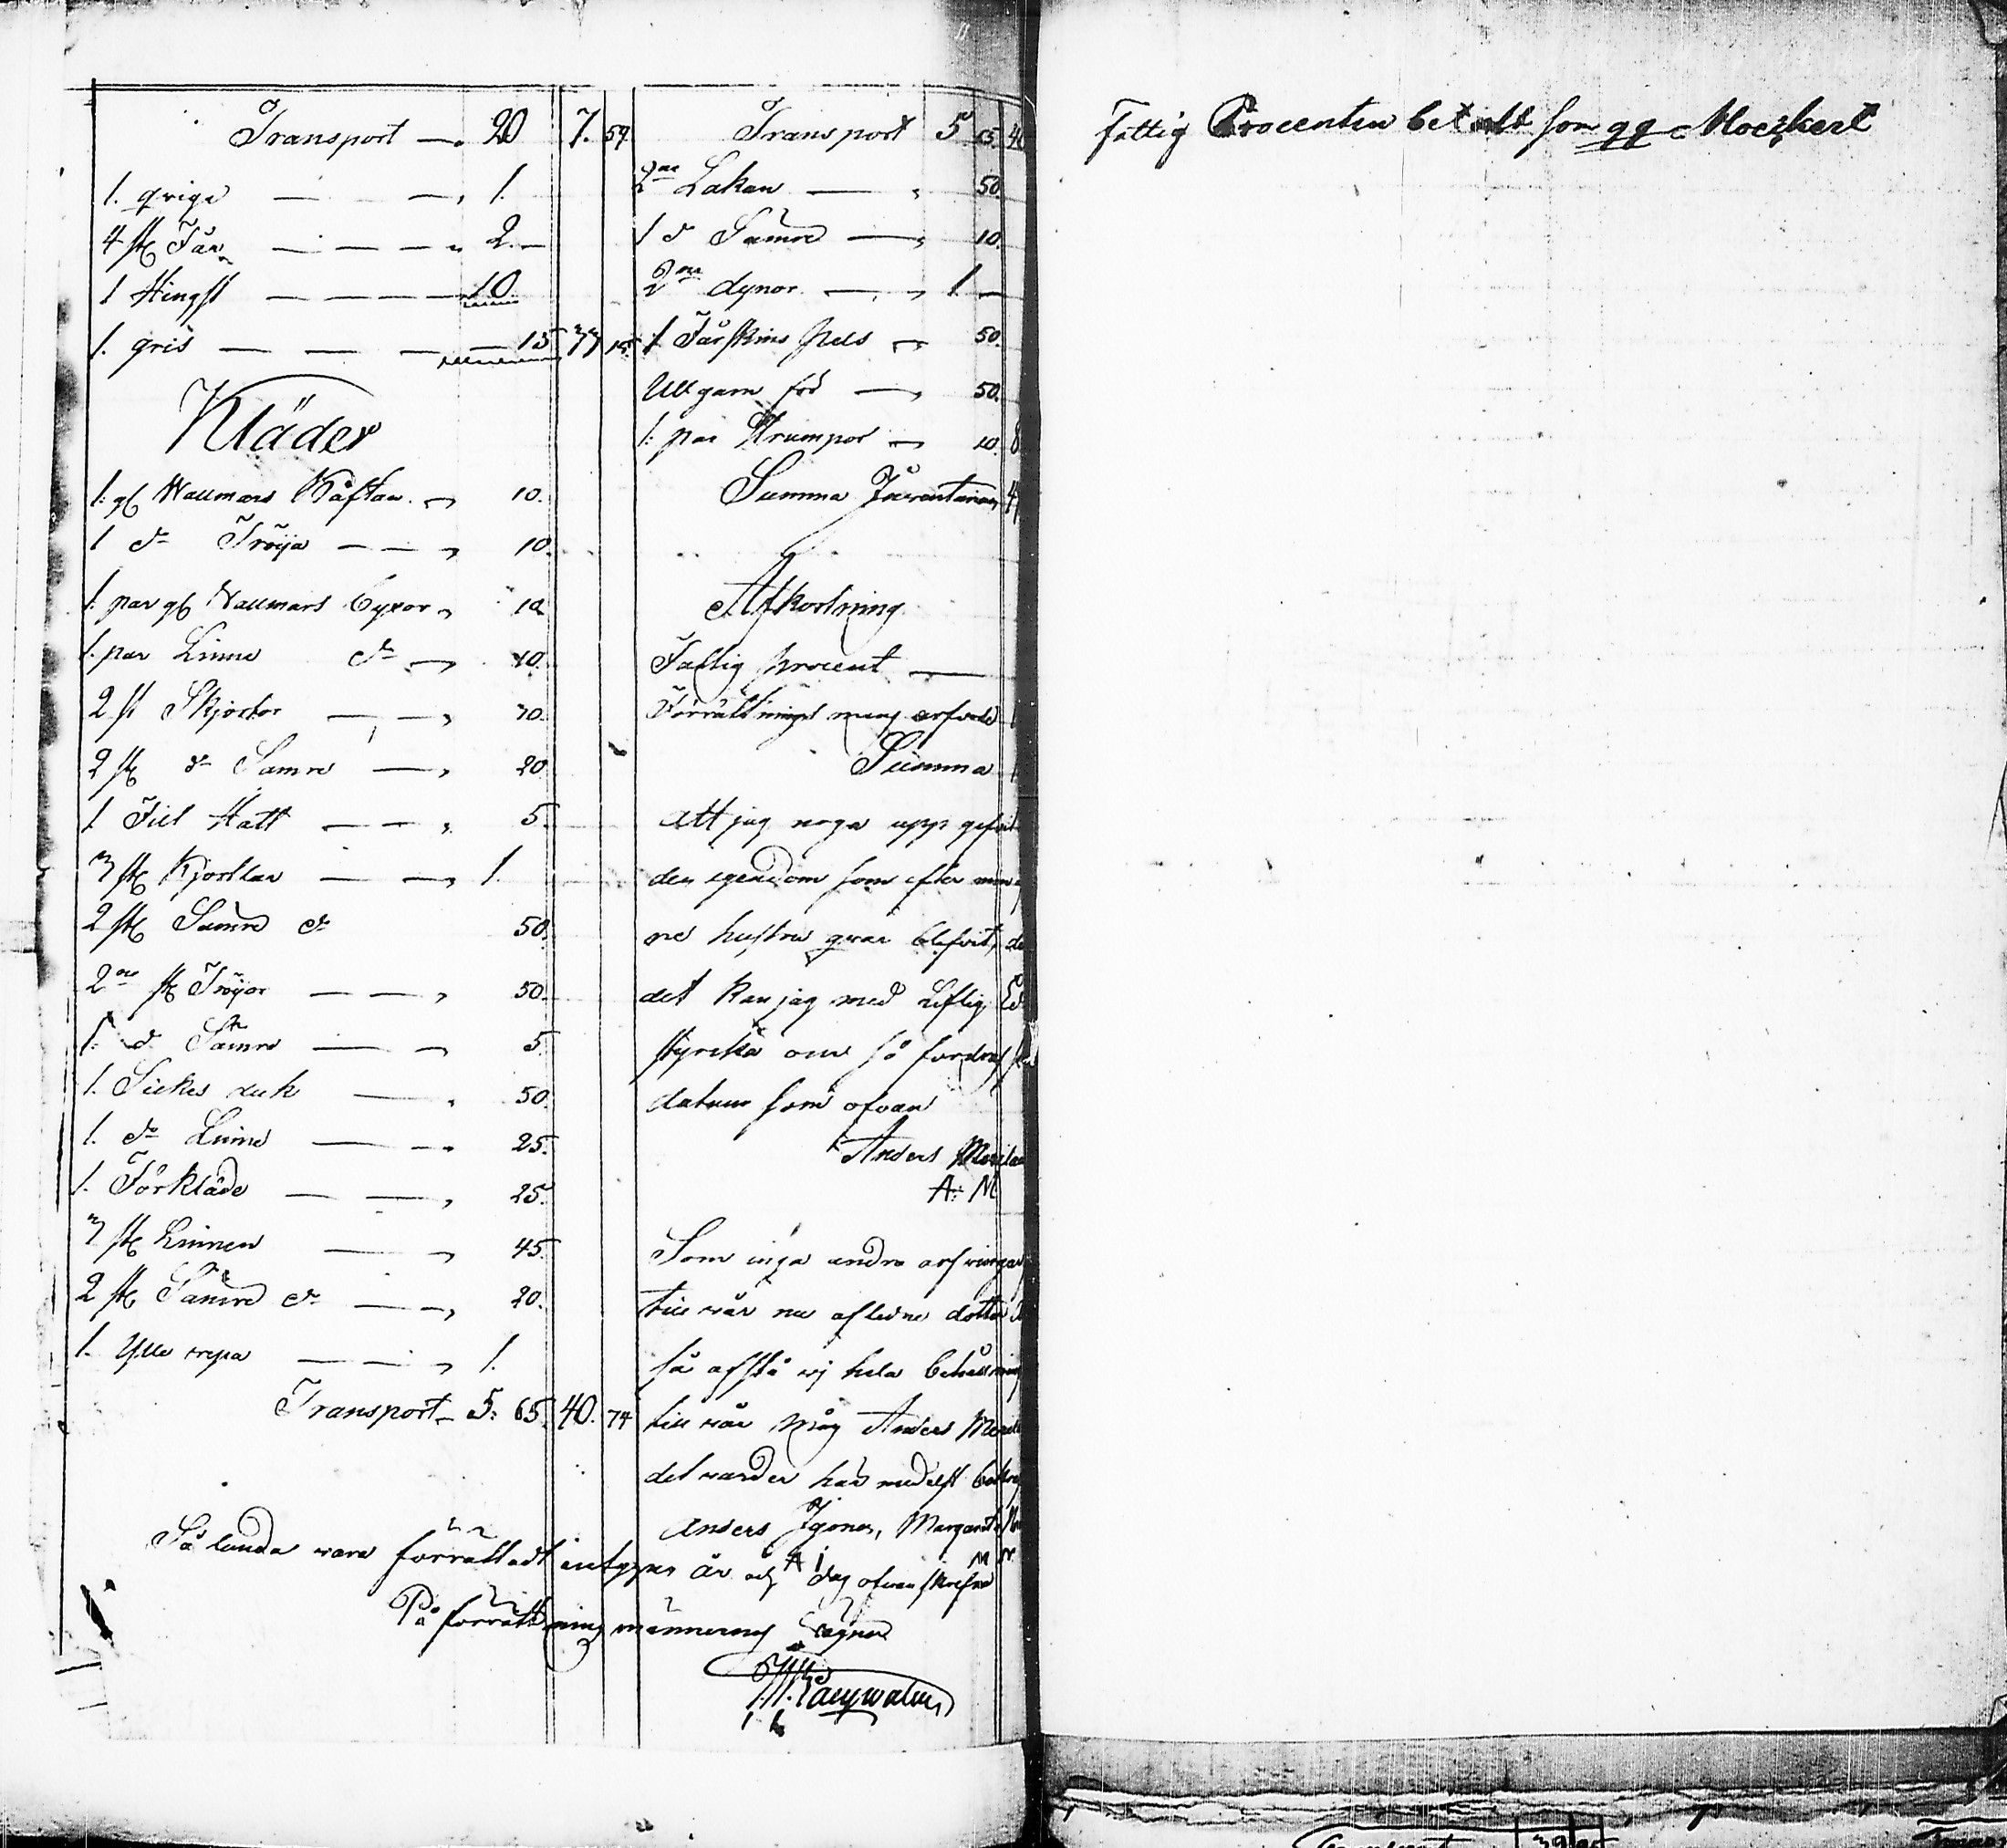 Transport — 20 7. 59
1. qviga — — 1.
4 st Får — — — 2. —
1 Hingst — — — 10
1. gris — — — 15 33 15
Kläder
1. gl Wallmars Kaftan 10.
1 d:o Tröija — — 10.
1. par gl Wallmars byxor 10
1. par Linne d:o 10.
2 st Skjortor — — 30.
2 st d:o Sämre — 20
1 Filt Hatt — — 5.
3 st Kjortlar — — 1.
2 st Sämre d:o 50.
2ne st Tröijor — — 50.
1. d:o Sämre — — 5
1. Silkes duk — 50.
1. d:o Linne — 25.
1. Förkläde — — 25.
3 st Linnen — 45.
2 st Sämre d:o — 20.
1. Ylle repa — — 1.
Transport — 5: 65. 40. 74
Transport 5 65 40
2ne Lakan — 50
1 d:o Sämre — 10.
2ne dynor — 1 —
1 Fårskins pels 50.
Ullgarn för — 50.
1. par Strumpor — 10. 8
Summa Inventarium 4
Afkortning
Fattig procent —
Förrättnings mans arfvode 1
Summa 1
att jag noga upp gifvit
den egendom som efter min
ne hustru qvar blifvit, de
det kan jag med Liflig Ed
styrcka om så fordras
datum som ofvan
Anders Meril
A: M
Som inga andra arfvingar
till vår nu aflidne dotter
så afstå vi hela behållning
till vår Måg Anders Meril
det varder här medelst
Anders Igones, Margareta
A I M
Så lunda vara förrättadt intygar år och dag ofvan skrefne
På förrättning männernes vägnar
Fattig Procenten betalt som qq Moeskert
Transport 39 95